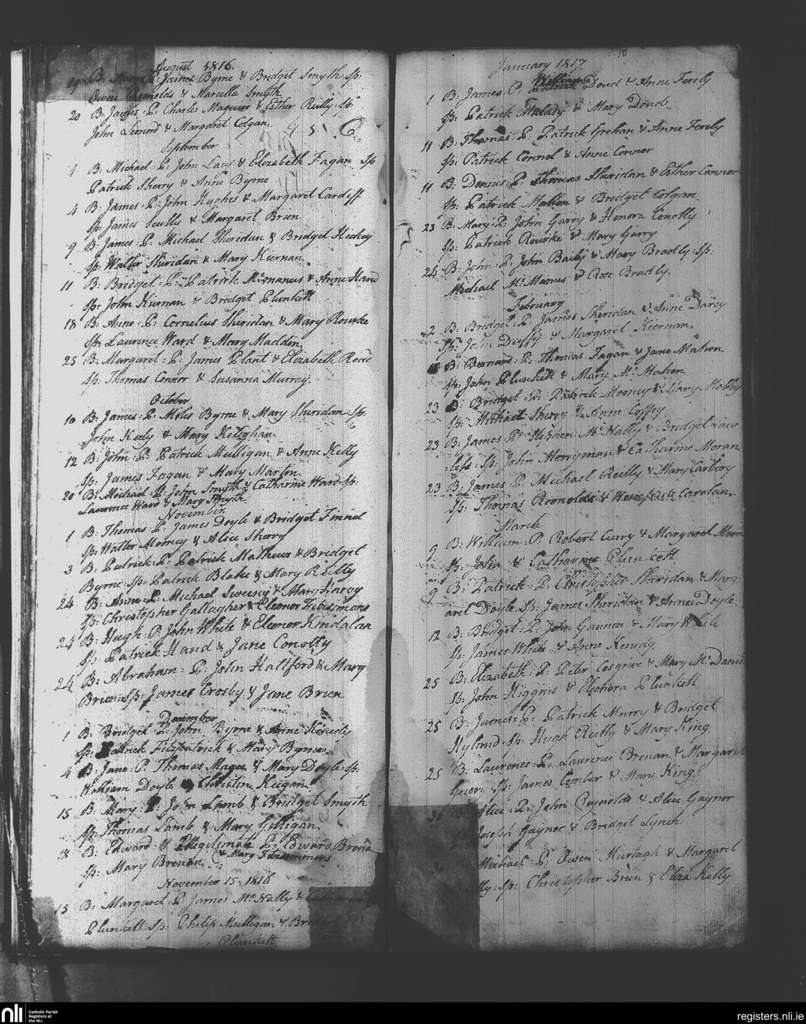 August 1816
B. P. James Byrne & Bridget Smyth Sp.
Owen Reynolds & Marcella Smyth
20 B. James P. Charles Maguire & Esther Reilly Sp.
John & Margaret Colgan
September
4 B. Michael P. John Lacy & Elizabeth Fagan Sp
Patrick Sherry & Anne Byrne
4 B. James P. John Hughes & Margaret Cardiff
Sp. James & Margaret Brien
9 B. James P. Michael Sheridan & Bridget Hickey
Sp. Walter Sheridan & Mary Kiernan
11 B. Bridget P. Patrick McManus & Anne Hand
Sp. John Kiernan & Bridget Plunkett
18 B. Anne P. Cornelius Sheridan & Mary Rourke
Sp. Laurence Ward & Mary Madden
25 B. Margaret P. James Plant & Elizabeth
Sp. Thomas Connor & Susanna Murray
October
10 B. James P. Miles Byrne & Mary Sheridan Sp
John Keely & Mary Keleghan
12 B. John P. Patrick Mulligan & Anne Kelly
Sp. James Fagan & Mary Martin
20 B. Michael P. John Smyth & Catharine Ward Sp.
Laurence Ward & Mary Smyth
November
1 B. Thomas P. James Doyle & Bridget
Sp. Walter Mooney & Alice Sherry
3 B. Patrick P. Patrick Mathews & Bridget
Byrne Sp. Patrick Blake & Mary Reilly
24 B. Anne P. Michael Sweeny & Mary
Sp. Christopher Gallagher & Eleonor Fitzsimons
24 B. Hugh P. John White & Eleonor
Sp. Patrick Hand & Jane Conolly
24 B. Abraham P. John Hallford & Mary
Brien Sp. James Crosby & Jane Brien
December
1 B. Bridget P. John Byrne & Anne Kenedy
Sp. Patrick Fitzpatrick & Mary Byrne
4 B. Jane P. Thomas Magee & Mary Doyle Sp.
William Doyle & Keegan
15 B. Mary P. John Lamb & Bridget Smyth
Sp. Thomas Lamb & Mary Gilligan
18 B. Edward P. Edward
Sp. Mary Brenan & Mary Fitzsimmons
November 15, 1816
15 B. Margaret P. James McNally &
Plunkett Sp. Philip Mulligan &
Plunkett
January 1817
William
1 B. James P. Doud & Anne Ferely
Sp. Patrick & Mary Doud
11 B. Thomas P. Patrick Grehan & Anne Ferely
Sp. Patrick Connel & Anne Connor
11 B. Dennis P. Thomas Sheridan & Esther Connor
Sp. Patrick & Bridget Colgan
23 B. Mary P. John Garry & Honora Conolly
Sp. Patrick Rourke & Mary Garry
25 B. John P. John Baily & Mary Bradly Sp.
Michael McManus & Rose Bradly
February
2 B. Bridget P. James Sheridan & Anne Darcy
Sp. John Duffy & Margaret Kiernan
B. Bernard P. Thomas Fagan & Jane
Sp. John Plunkett & Mary
23 B. Bridget P. Patrick Mooney & Mary
Sp. Michael Sherry & Anne Coffey
23 B. James P. Stephen McNally & Bridget
Sp. John & Catharine Moran
23 B. James P. Michael Reilly & Mary
Sp. Thomas Reynolds & Carolan
March
9 B. William P. Robert Cury & Margaret
Sp. John & Catharine Plunkett
9 B. Patrick P. Christopher Sheridan & Marg
aret Doyle Sp. James Sheridan & Anne Doyle
12 B. Bridget P. John Gannon & Mary
Sp. James White & Anne Kenedy
25 B. Elizabeth P. Peter Cosgrive & Mary McDaniel
Sp. John Higgins & Eleonora Plunkett
25 B. James P. Patrick Murry & Bridget
Hyland Sp. Hugh Reilly & Mary King
25 B. Laurence P. Laurence Brenan & Margaret
Sp. James & Mary King
Alice P. John Reynolds & Alice Gaynor
Joseph Gaynor & Bridget Lynch
Michael P. Owen Murtagh & Margaret
Sp. Christopher Brien & Eliza Kelly
nli Catholic Parish Registers at the NLI
registers.nli.ie